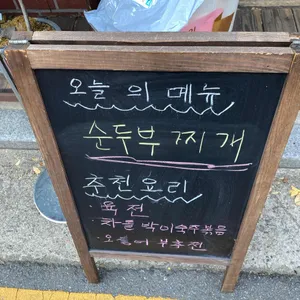 오늘의 메뉴
순두부찌개
추천요리
· 육전
· 차돌박이숙주볶음
· 오징어 부추전